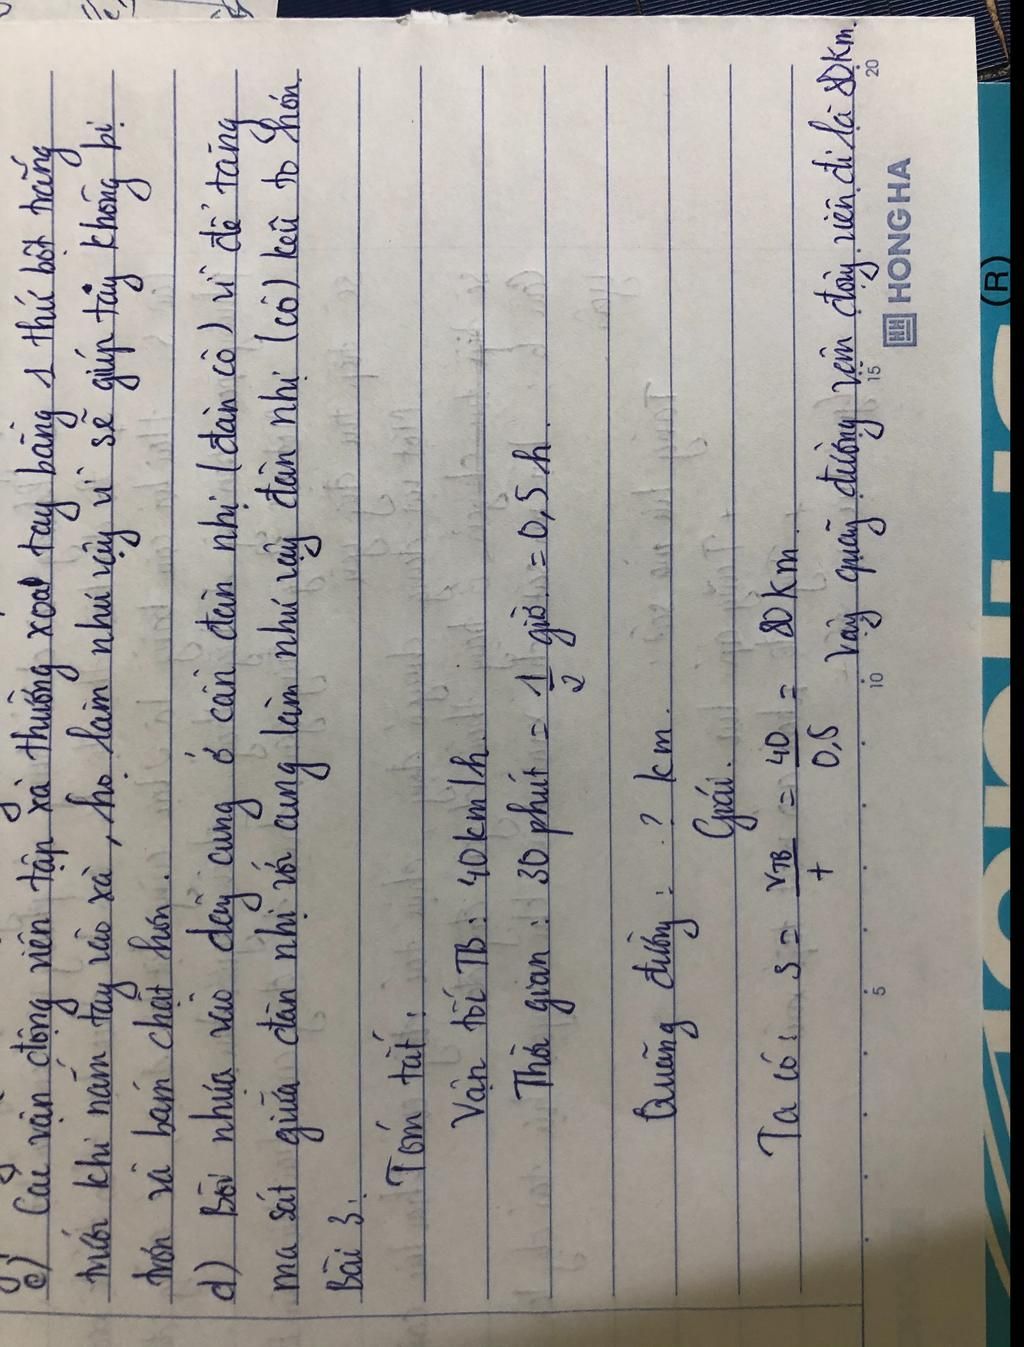 c) Các vận động viên tập xà thường xoa tay bằng 1 thứ bột trắng
trước khi nắm tay vào xà, họ làm như vậy vì sẽ giúp tay không bị
trơn và bám chặt hơn.
d) Bôi nhựa vào dây cung ở cần đàn nhị (đàn cò) vì để tăng
ma sát giữa đàn nhị với cung làm như vậy đàn nhị (cò) kêu to hơn.
Bài 3:
Tóm tắt:
Vận tốc TB: 40km/h
Thời gian: 30 phút = 1/2 giờ = 0,5 h.
Quãng đường: ? km.
Giải.
Ta có: S = vTB/t = 40/0,5 = 80 Km
Vậy quãng đường vận động viên đi là 80Km.
5 10 15 20
HONG HA
(R)